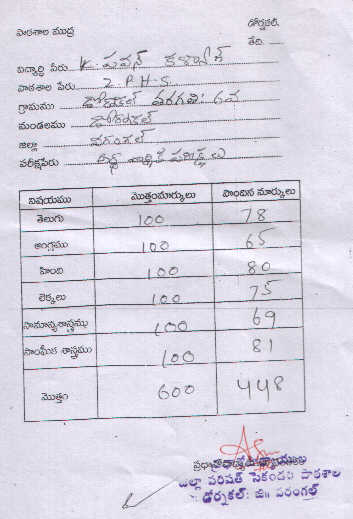 పాఠశాల ముద్ర డోర్నకల్.
తేది: ...
విద్యార్థి పేరు K. పవన్ కళ్యాణ్
పాఠశాల పేరు Z.P.H.S.
గ్రామము డోర్నకల్ తరగతి: 6వ
మండలము డోర్నకల్
జిల్లా వరంగల్
పరీక్షపేరు అర్ధ వార్షిక పరీక్షలు
విషయము మొత్తంమార్కులు పొందిన మార్కులు
తెలుగు 100 78
ఆంగ్లము 100 65
హింది 100 80
లెక్కలు 100 75
సామాన్యశాస్త్రము 100 69
సాంఘీక శాస్త్రము 100 81
మొత్తం 600 448
జిల్లా పరిషత్ సెకండరి పాఠశాల
డోర్నకల్: జి॥ వరంగల్